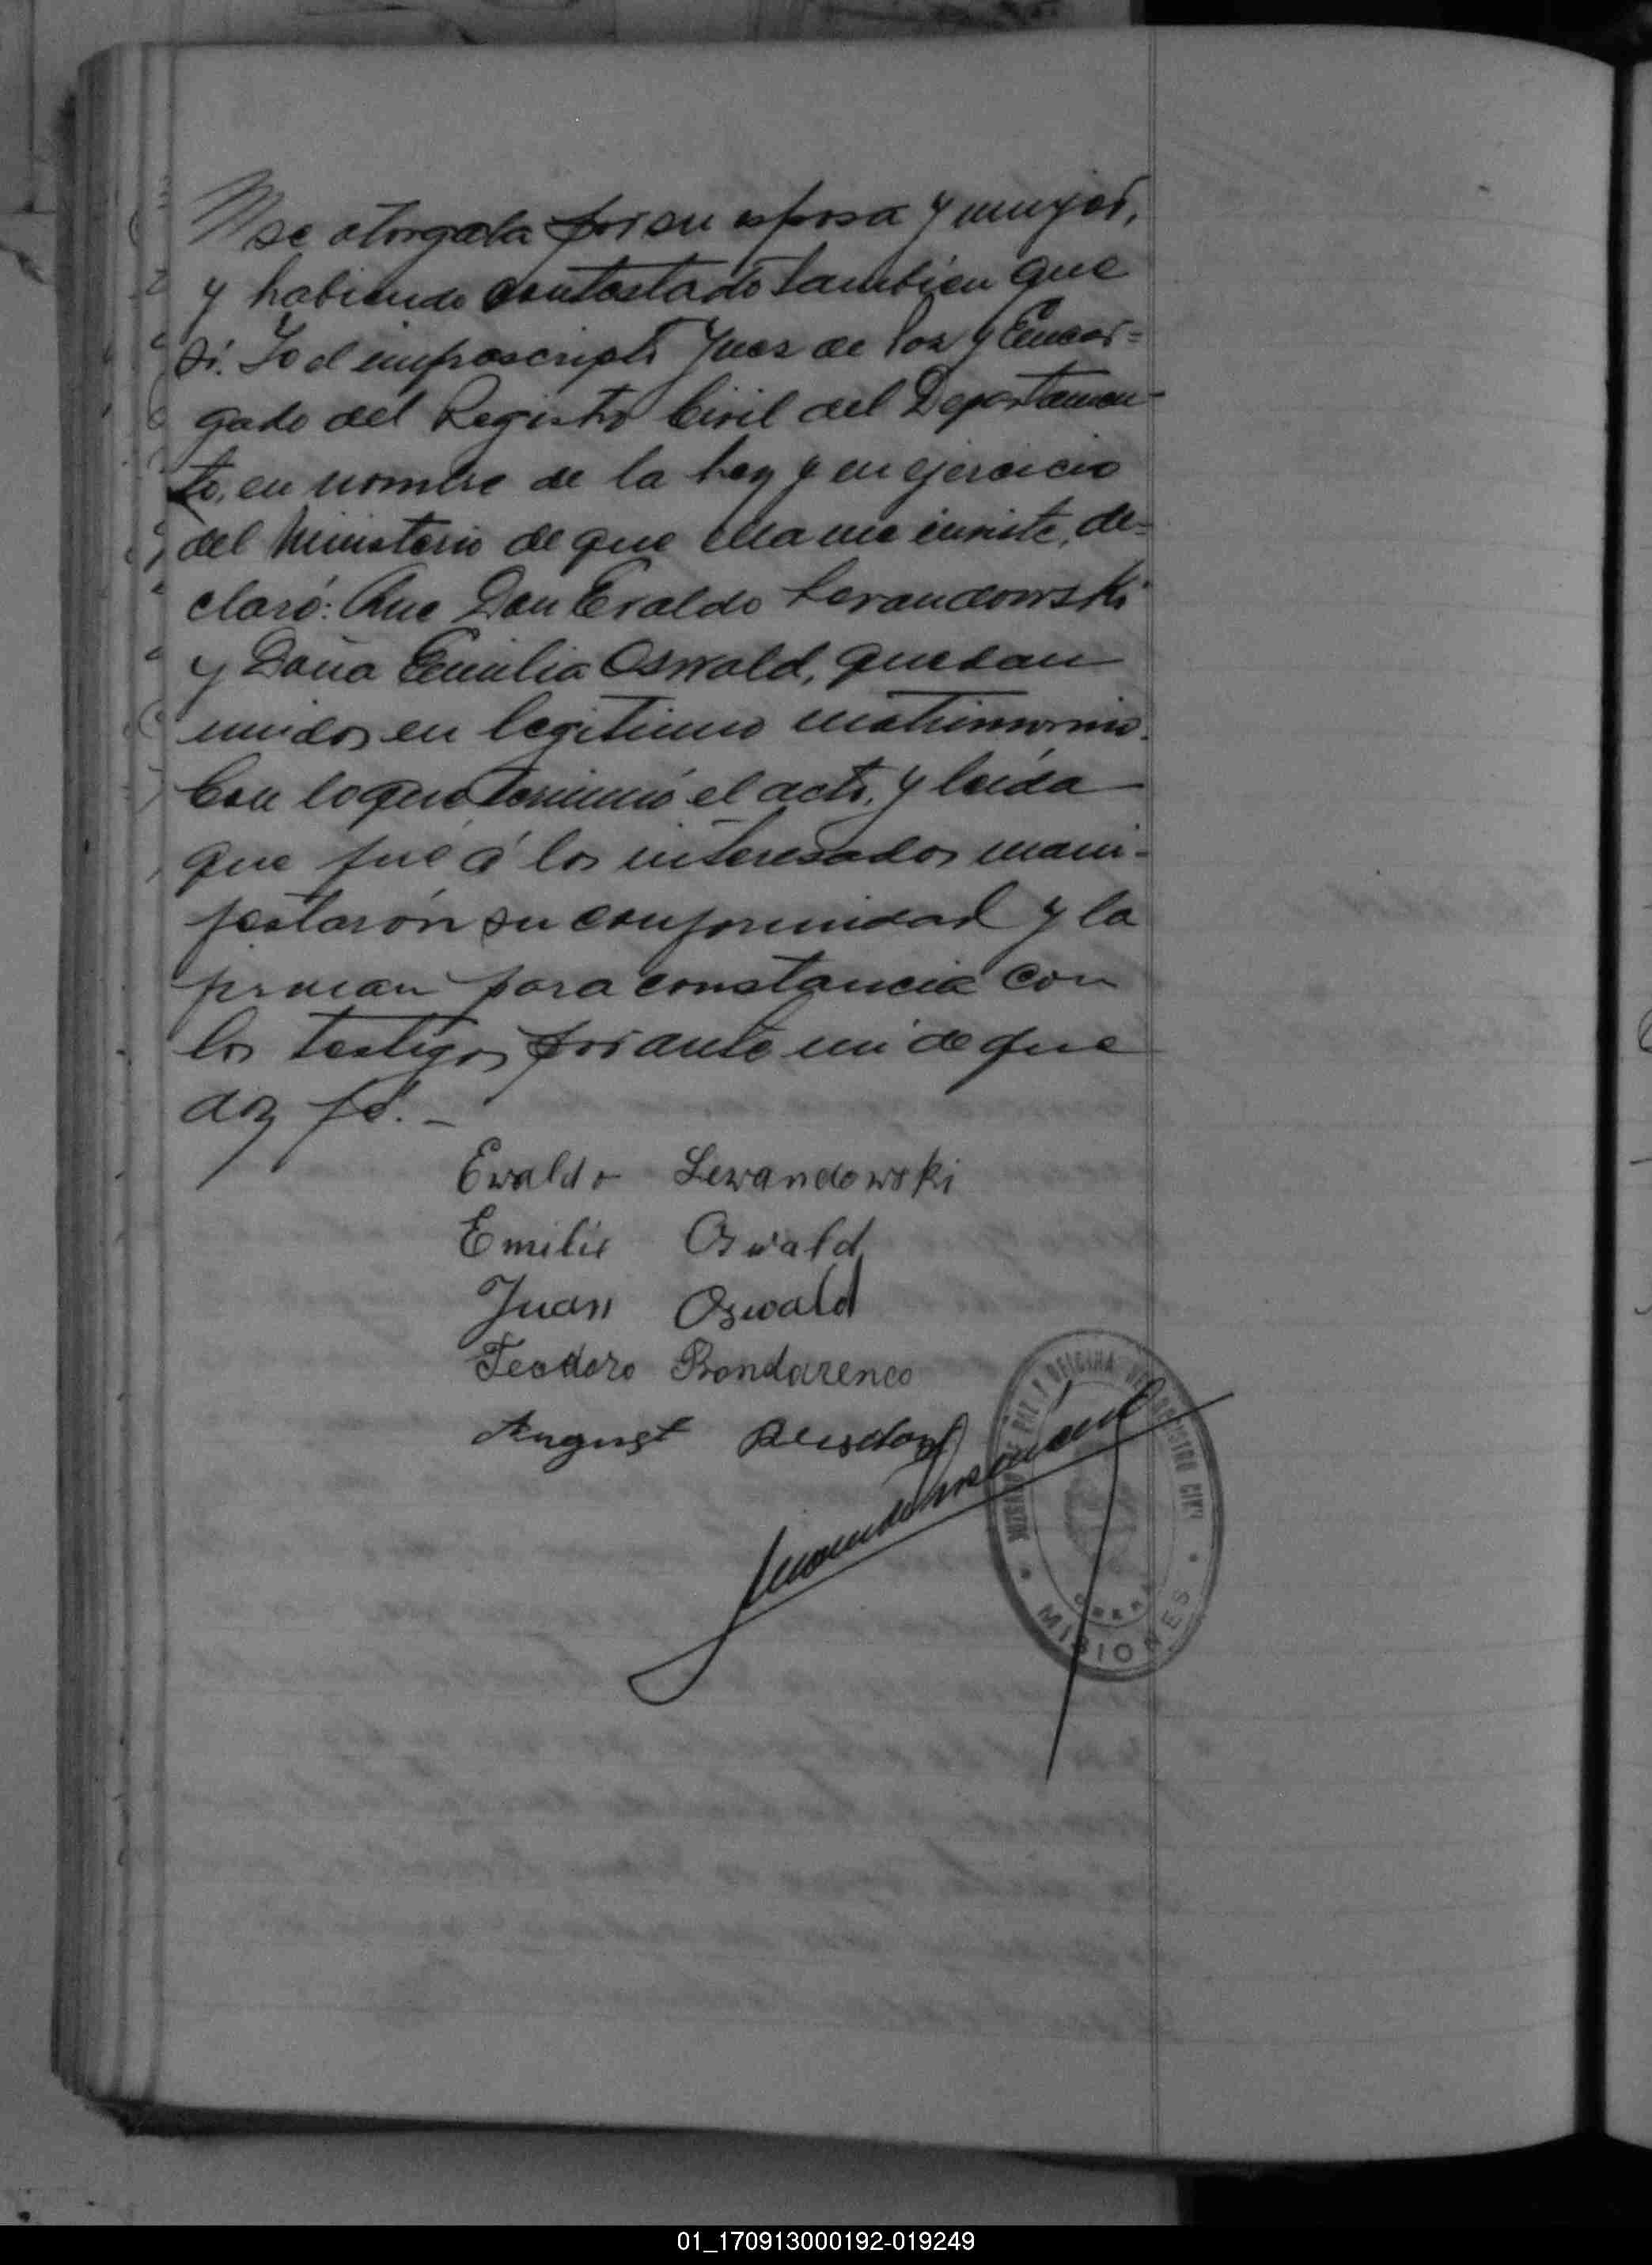 se otorgaba por su esposa y mujer,
y habiendo contestado tambien que
sí. Yo el infrascripto Juez de Paz y Encar=
gado del Registro Civil del Departamen-
to, en nombre de la Ley y en ejercicio
del Ministerio de que ella me inviste, de=
claró: Que Don Evaldo Levandowski
y Doña Emilia Oswald, quedan
unidos en legitimo matrimonio.
Con lo que terminó el acto, y leída
que fué á los interesados mani-
festarón su conformidad y la
firman para constancia con
los testigos por ante mi de que
doy fé. -
Ewaldo Lewandowski
Emilie Oswald
Juan Oswald
Teodoro Bondarenco
August
JUZGADO DE PAZ Y OFICINA DEL REGISTRO CIVIL
MISIONES
01_170913000192-019249